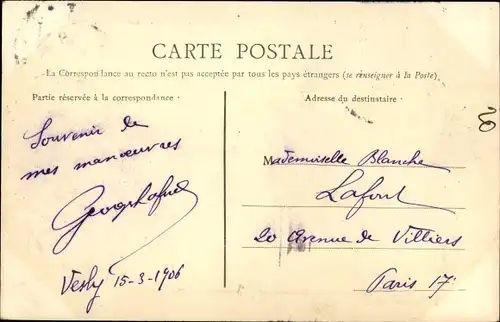 CARTE POSTALE
La Correspondance au recto n'est pas acceptée par tous les pays étrangers (se renseigner à la Poste)
Partie réservée à la correspondance
Adresse du destinataire
Souvenir de
mes manœuvres
Vesly 15-3-1906
Mademoiselle Blanche
Lafont
20 Avenue de Villiers
Paris 17